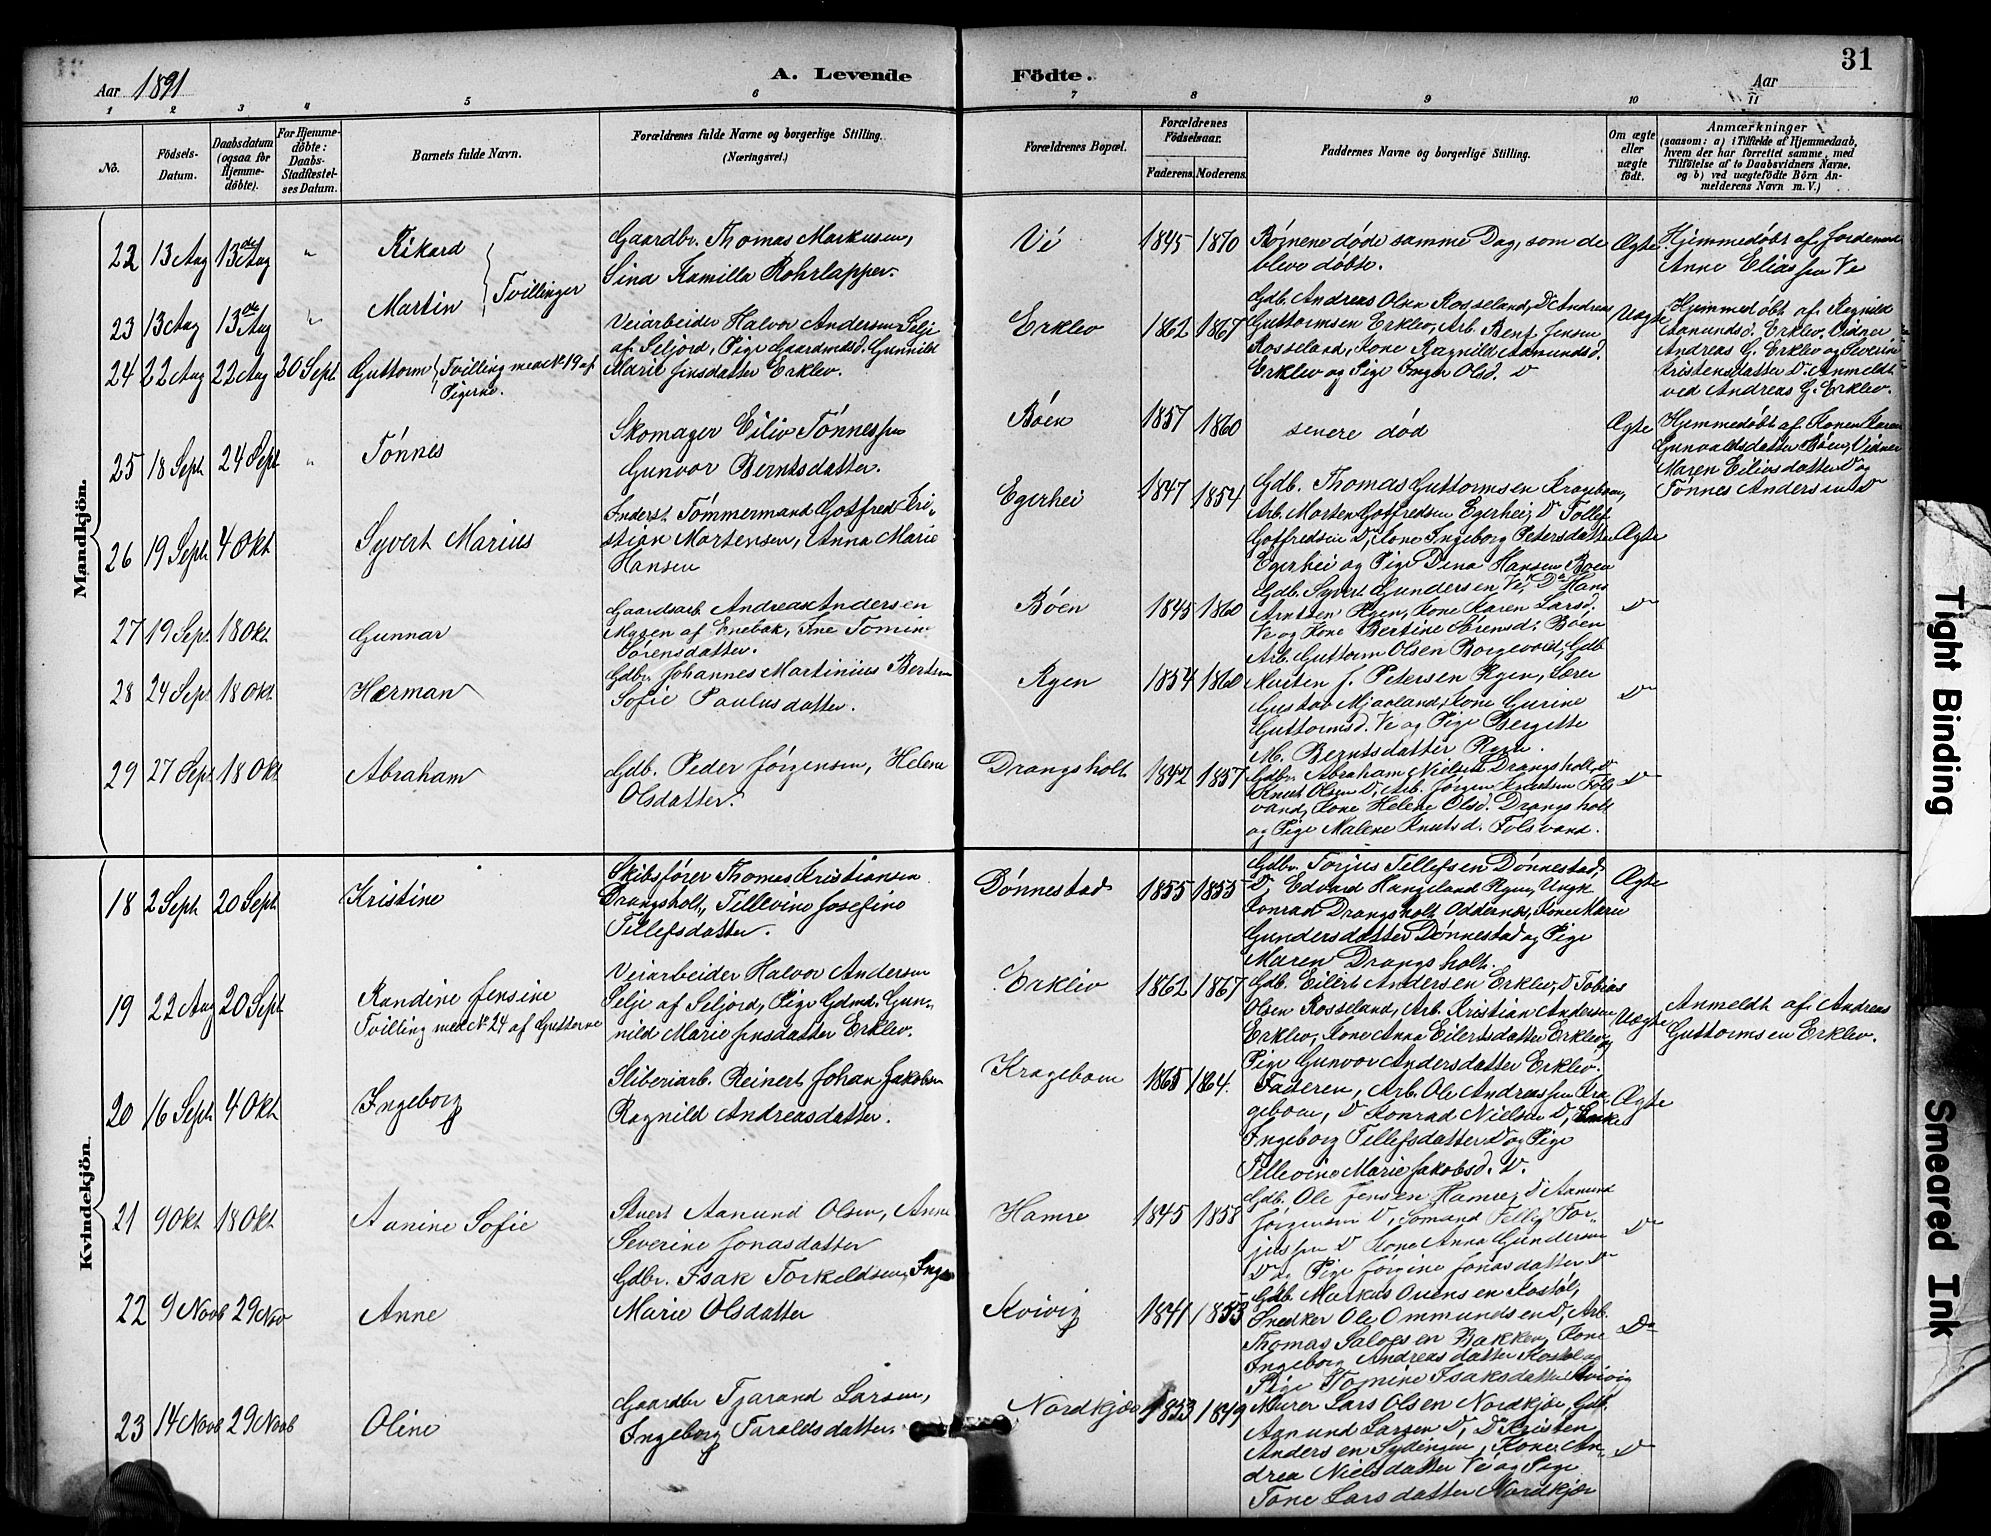 Aar 1891
A. Levende Födte.
Aar
31
1 2 3 4 5 6 7 8 9 10 11
No.
Födsels-Datum.
Daabsdatum (ogsaa for Hjemme-döbte).
For Hjemme-döbte: Daabs-Stadfæstel-ses Datum.
Barnets fulde Navn.
Forældrenes fulde Navne og borgerlige Stilling. (Næringsvei.)
Forældrenes Bopæl.
Forældrenes Födselsaar.
Faderens. Moderens.
Faddernes Navne og borgerlige Stilling.
Om ægte eller uægte födt.
Anmærkninger
(saasom: a) i Tilfælde af Hjemmedaab, hvem der har forrettet samme, med Tilföielse af to Daabsvidners Navne, og b) ved uægtefödte Börn An-melderens Navn m. V.)
Mandkjön.
22 13 Aug 13de Aug " Rikard
Gaardbr. Thomas Markusen,
Sina Kamilla Rohrlapper.
Vé 1845 1870
Börnene döde samme Dag, som de
bleve döbte.
Ægte
Hjemmedöbt af Jordemod.
Anne Elias fra Ve
23 13 Aug 13de Aug " Martin } Tvillinger
24 22 Aug 22 Aug 20 Sept. Guttorm { Tvilling med No 19 af
Pigerne.
Veiarbeider Halvor Andersen Selje
af Seljord, Pige Gaardmdsd. Gunnild
Marie Jensdatter Erklev.
Erklev 1862 1867
Gdb. Andreas Olsen Rosseland, Do Andreas
Guttormsen Erklev, Arb. Bent Jensen
Rosseland, Kone Ragnild Aamundsd.
Erklev og Pige Inger Olsd. Do
Uægte
Hjemmedöbt af Ragnild
Aamundsd. Erklev, Vidner
Andreas G. Erklev og Severine
Kristensdatter Do. Anmeldt
ved Andreas G. Erklev.
25 18 Sept. 24 Sept. " Tönnes
Skomager Eiliv Tönnessen
Gunvor Berntsdatter.
Böen 1857 1860
senere död
Ægte
Hjemmedöbt af Konen Karen
Gunvaldsdatter Böen, Vidner
Maren Eilivsdatter Do og
Tönnes Andersen Do
26 19 Sept. 4 Okt Syvert Marius
Inderst Tömmermand Gotfred Kri-
stian Mortensen, Anna Marie
Hansen
Egerhei 1847 1854
Gdb. Thomas Guttormsen Krageboen,
Arb. Morten Gotfredsen Egerhei, Do Tollef
Gotfredsen Do, Kone Ingeborg Petersdatter
Egerhei og Pige Dina Hansen Boen
Ægte
27 19 Sept. 18 Okt Gunnar
Gaardsarb. Andreas Andersen
Mysen af Enebak, Ine Tomine
Sörensdatter.
Böen 1845 1860
Gdb. Syvert Gundersen Ve, Do Hans
Arntsen Ryen, Kone Karen Larsd.
Ve og Kone Bertine Sörensd. Boen
Do
28 24 Sept 18 Okt. Hærman
Gdbr. Johannes Martinius Bertsen
Sofie Paulusdatter.
Ryen 1854 1860
Arb. Guttorm Olsen Borgevold, Gdb
Morten J. Petersen Ryen, Lærer
Gustav Mjaaland, Kone Gurine
Guttormsd. Ve og Pige Bergitte
M. Berntsdatter Ryen.
Do
29 27 Sept 18 Okt Abraham
Gdb. Peder Jörgensen, Helene
Olsdatter.
Drangsholt 1842 1857
Gdbr. Abraham Nielsen Drangsholt, Do
Knut Olsen Do, Arb. Jörgen Knutsen Föls
vand, Kone Helene Olsd. Drangsholt
og Pige Malene Knutsd. Folsvand.
Do
Kvindekjön.
18 2 Sept 20 Sept Kristine
Skibsförer Thomas Kristiansen
Drangsholt, Tellevine Josefine
Tellefsdatter.
Dönnestad 1855 1855
Gdbr. Torjus Tellefsen Dönnestad,
Do, Edvard Hangeland Ryen, Ungk.
Konrad Drangsholt Oddernes, Kone Marie
Gundersdatter Dönnestad og Pige
Maren Drangsholt.
Ægte
19 22 Aug 20 Sept Randine Jensine
Tvilling med No 24 af Guttorne
Veiarbeider Halvor Andersen
Selje af Seljord, Pige Gdmd. Gun-
nild Marie Jensdatter Erklev.
Erklev 1862 1867
Gdb. Eilert Andersen Erklev, Do Tobias
Olsen Rosseland, Arb. Kristian Andersen
Erklev, Kone Anna Eilertsdatter Erklev og
Pige Gunvor Andersdatter Erklev.
Uægte
Anmeldt af Andreas
Guttormsen Erklev.
20 16 Sept. 4 Okt Ingeborg
Sliberiarb. Reinert Johan Jakobsen
Ragnild Andreasdatter.
Krageboen 1865 1864.
Faderen, Arb. Ole Andreassen Kra-
geboen, Do Konrad Nielsen Do, Enke
Ingeborg Tellefsdatter Do og Pige
Tellevine Marie Jakobsd. Do.
Ægte
21 9 Okt. 18 Okt. Aanine Sofie
Stuert Aanund Olsen, Anne
Severine Jonasdatter
Hamre 1845 1858
Gdb. Ole Jensen Hamre, Do Aanund
Jörgensen Do, Sömand Tellef Tor-
jussen Do Kone Anna Gundersen
Do og Pige Jörgine Jonasdatter Do
Do
22 9 Novb 29 Nov Anne
Gdbr. Isak Torkeldsen, Inger
Marie Olsdatter
Kvivig 1841 1853
Gdb. Markus Ovensen Kostöl,
Snedker Ole Ommundsen Do, Arb.
Thomas Salvesen Bakken, Kone
Ingeborg Andreasdatter Kostöl og
Pige Tomine Isaksdatter Kvivig
Do
23 14 Novb 29 Novb Oline
Gaardbr Tjarand Larsen,
Ingeborg Taraldsdatter.
Nordkjær 1853 1849
Murer Lars Olsen Nordkjær, Gdb.
Aanund Larsen Do, Do Kristen
Andersen Sydingen, Kone An-
drea Nielsdatter Ve og Pige
Tone Larsdatter Nordkjær
Do
Tight Binding
Smeared Ink